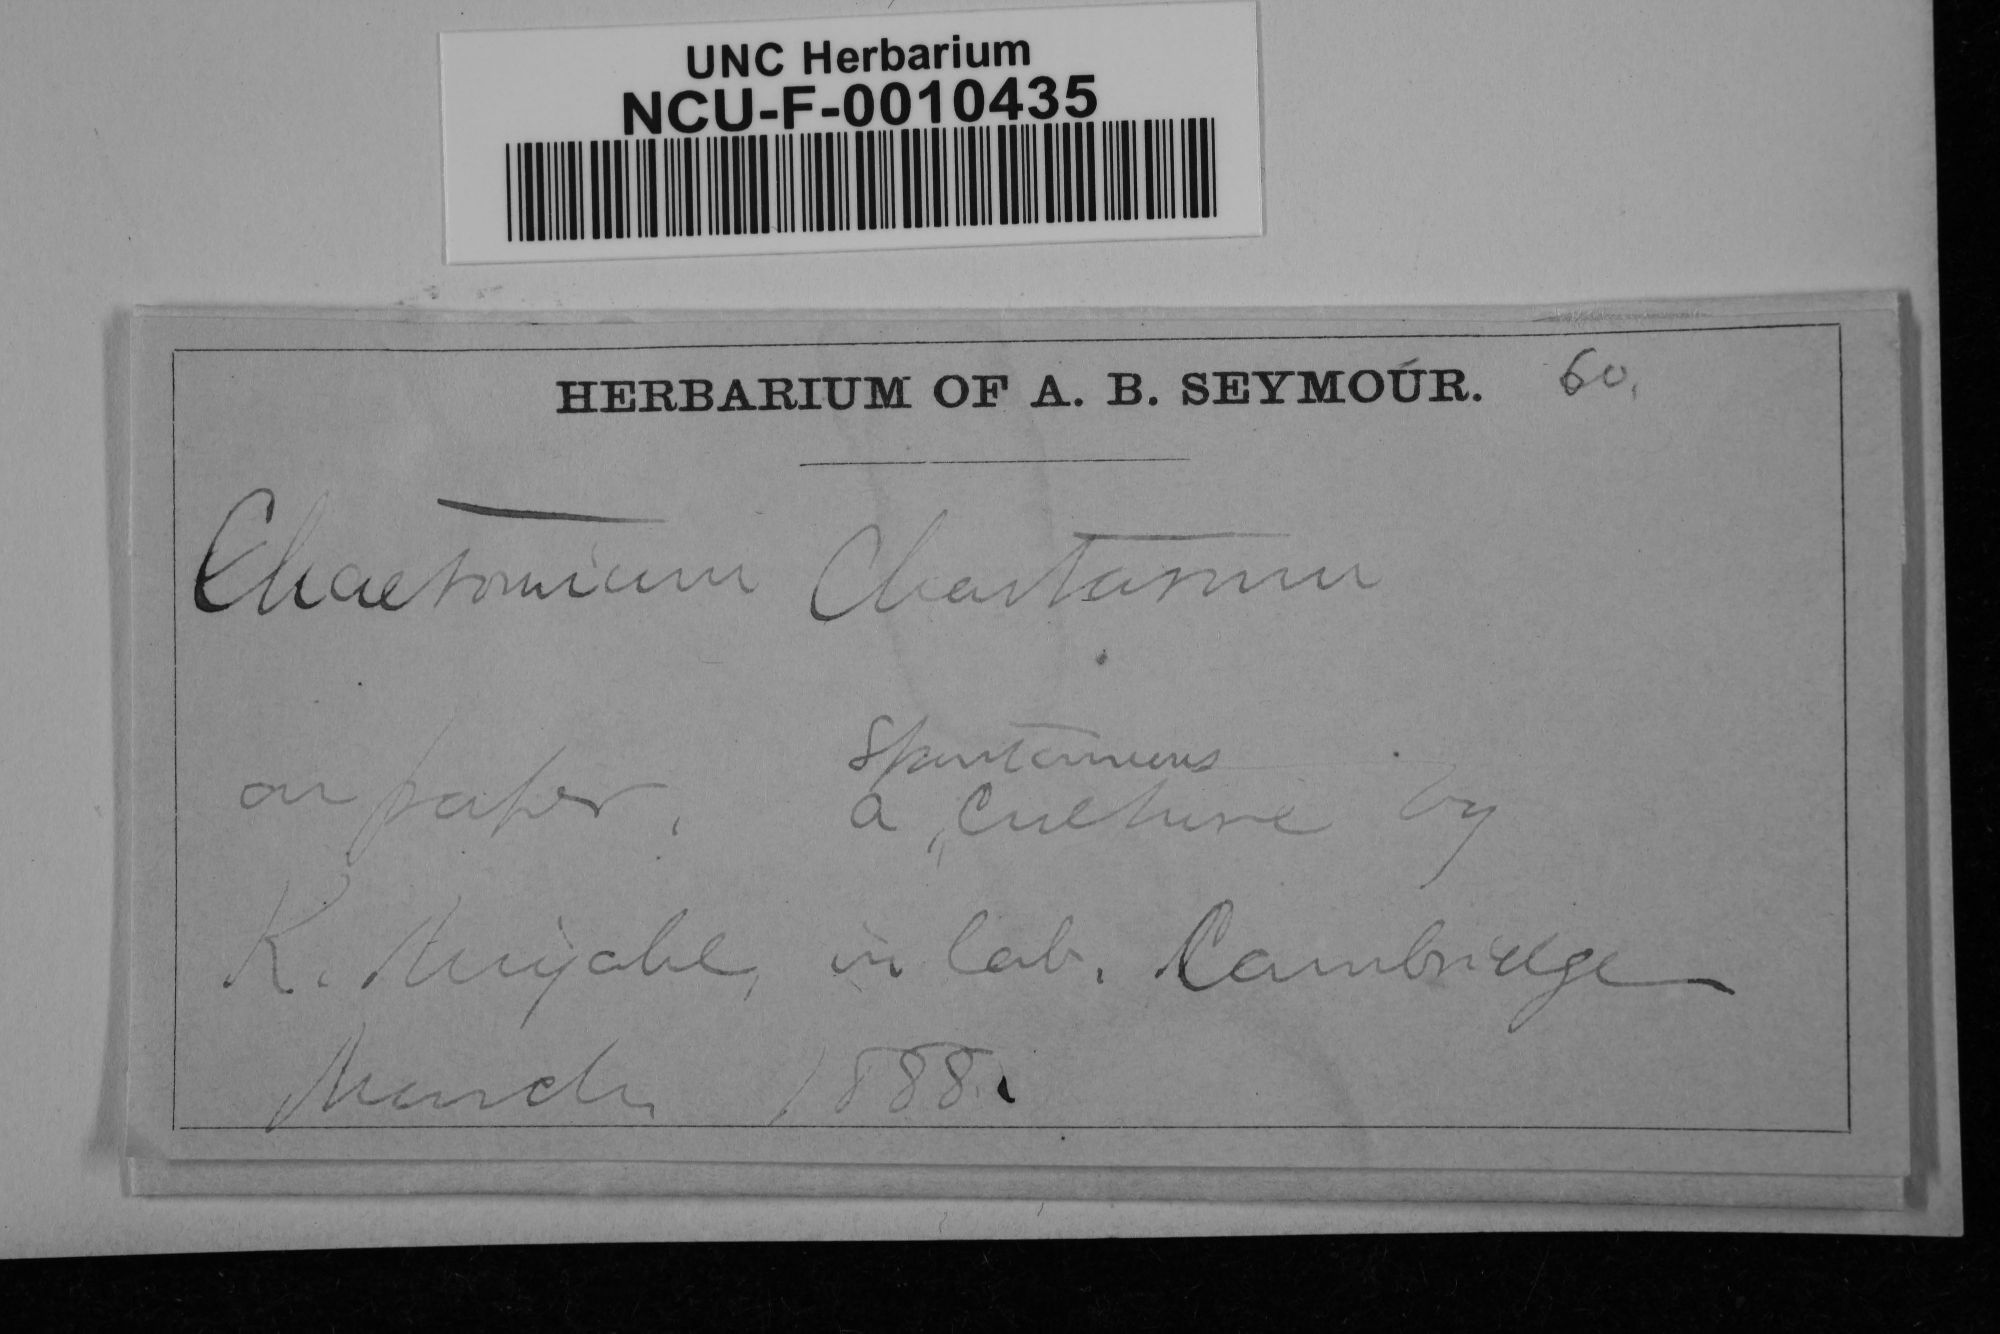 UNC Herbarium
NCU-F-0010435
HERBARIUM OF A. B. SEYMOUR. 60.
Chaetomium Chartarum
on paper. a spontaneous culture by
K. Miyabe, in lab. Cambridge
March 1888.